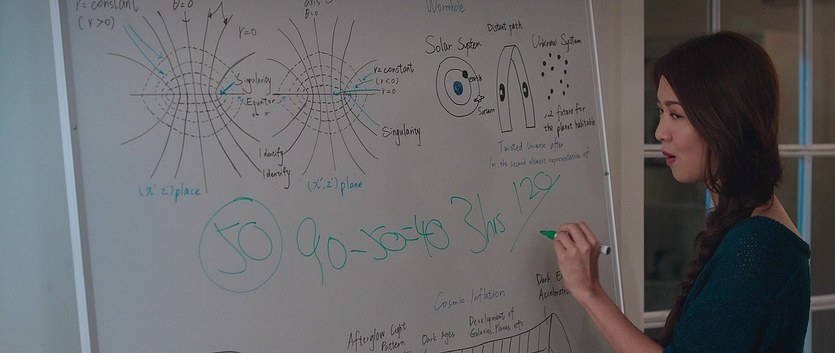 r = constant
(r>0)
θ=0
r=0
Singularity
Equator
Identify
Identify
(x',z') place
axis
θ=0
r=constant
(r<0)
r=0
Singularity
(x',z') plane
Wormhole
Solar System
earth
Saturn
Distant path
Unknow System
12 future for
the planet habitable
Twisted Universe after
the second element representative of
50
90-50=40
3hrs
120/
Cosmic Inflation
Afterglow Light
Pattern
Dark Ages
Development of
Galaxies, Planes etc
Dark E
Accelerate